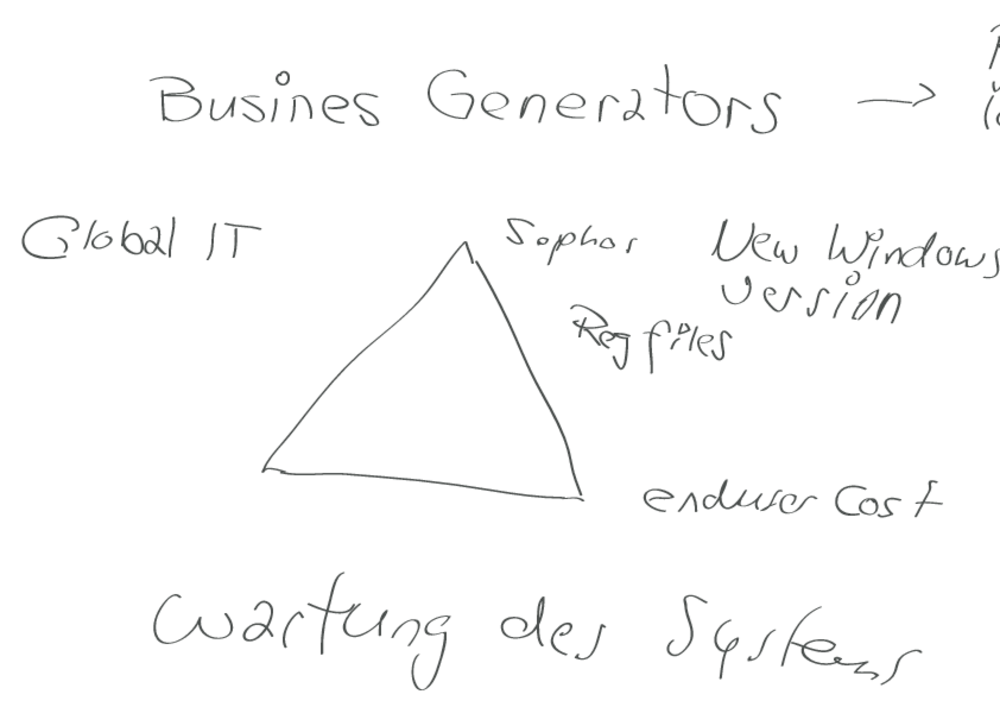 Busines Generators →
Global IT
Sophos
New Windows
version
Reg files
enduser Cost
Wartung des Systems